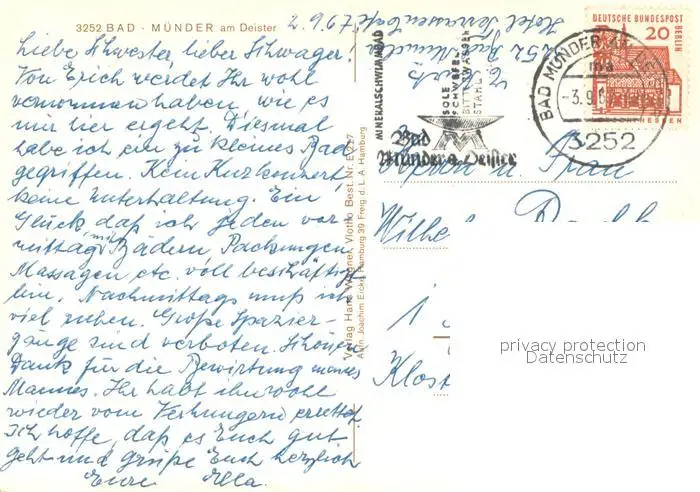 3252 BAD - MÜNDER am Deister
2.9.67
Liebe Schwester lieber Schwager!
Von Erich werdet Ihr wohl
vernommen haben, wie es
mir hier ergeht. Diesmal
habe ich ein zu kleines Bad
gegriffen. Kein Kurkonzert
keine Unterhaltung. Ein
Glück daß ich jeden vor
mittag mit Bädern, Packungen
Massagen etc. voll beschäftigt
bin. Nachmittags muß ich
viel ruhen. Große Spazier-
gänge sind verboten. Schönen
Dank für die Bewirtung meines
Mannes. Ihr habt ihn wohl
wieder vom Verhungern errettet
Ich hoffe, daß es Euch gut
geht und grüße Euch herzlich
Eure Ella.
Verlag Hans Wagner, Vlotho Best. Nr.
Joachim Eicke, Hamburg 39 Freg. d. L. A. Hamburg
MINERALSCHWIMMBAD
SOLE
SCHWEFEL
BITTERWASSER
STAHL
Bad
Münder a. Deister
DEUTSCHE BUNDESPOST
BERLIN
20
BAD MÜNDER
ma
-3.9
3252
HESSEN
u. Frau
1
Klost
privacy protection
Datenschutz